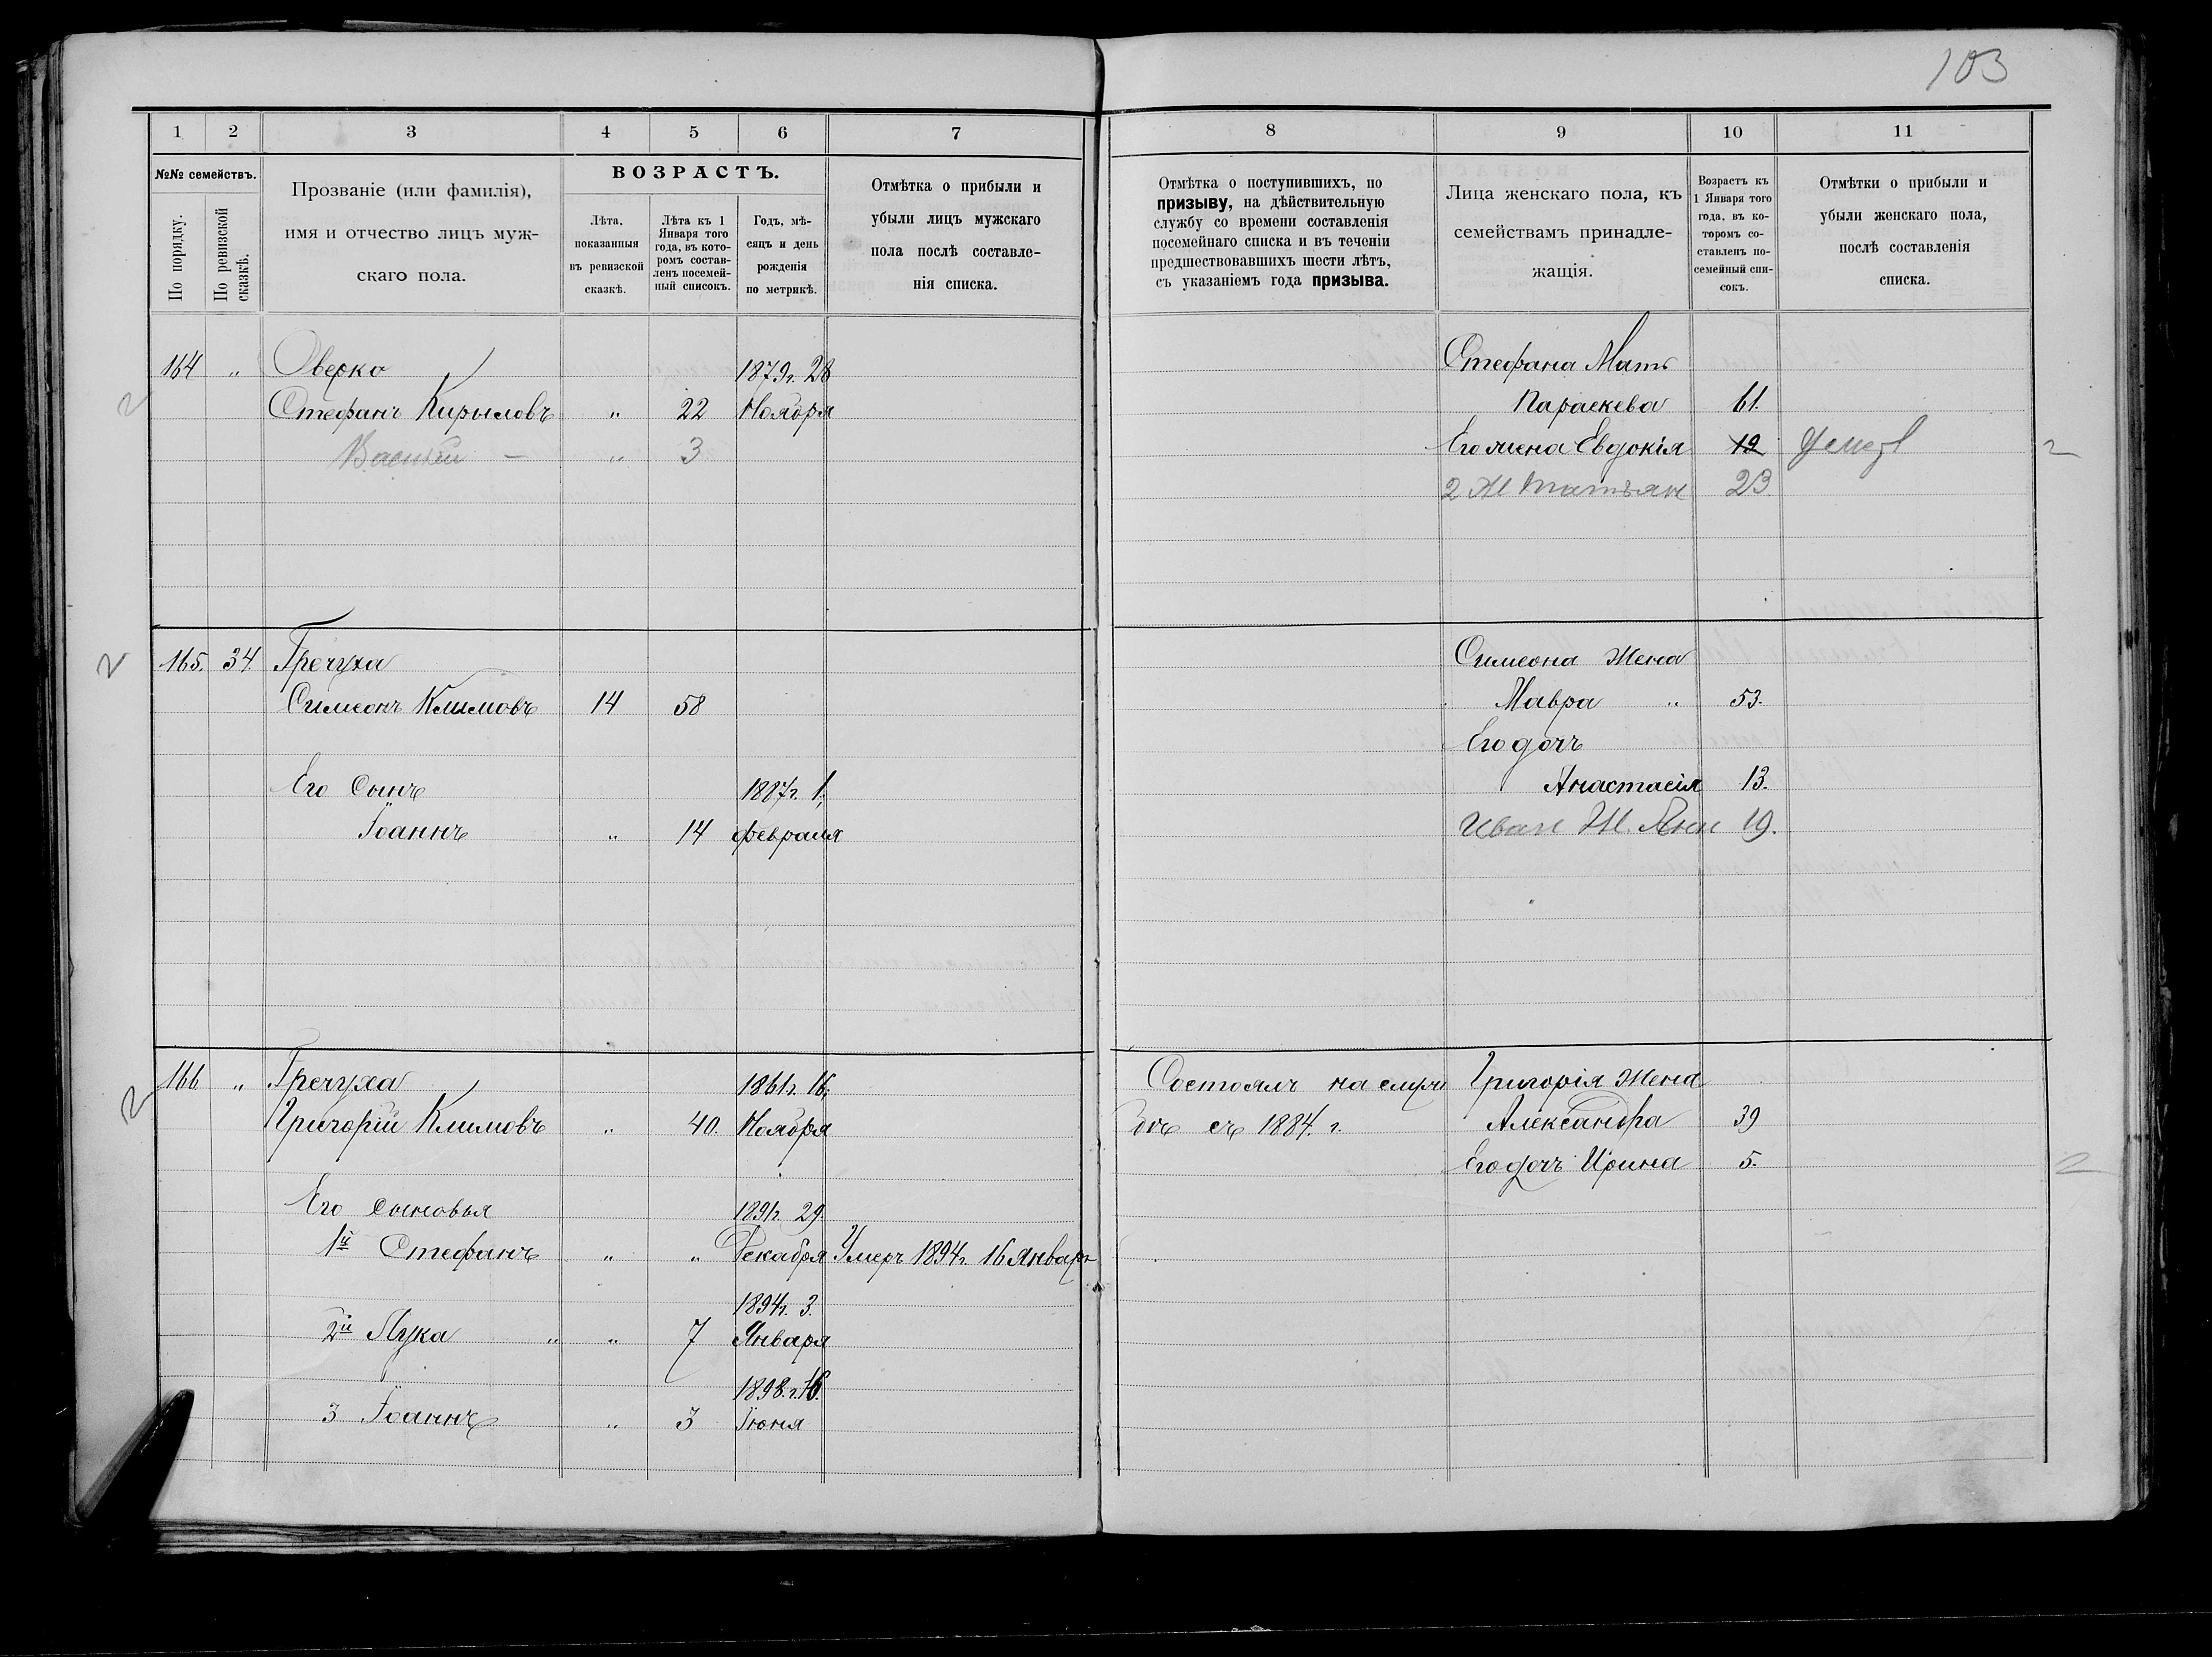 103
1 2 3 4 5 6 7
№№ семействъ.
По порядку.
По ревизской сказкѣ.
Прозваніе (или фамилія),
имя и отчество лицъ муж-
скаго пола.
ВОЗРАСТЪ.
Лѣта,
показанныя
въ ревизской
сказкѣ.
Лѣта къ 1
Января того
года, въ кото-
ромъ состав-
ленъ посемей-
ный списокъ.
Годъ, мѣ-
сяцъ и день
рожденія
по метрикѣ.
Отмѣтка о прибыли и
убыли лицъ мужскаго
пола послѣ составле-
нія списка.
164 „ Оверко 1879г. 28
2 Стефанъ Кирыловъ „ 22 Ноября
Василій — „ 3
2 165. 34 Гречуха
Симеонъ Климовъ 14 58
Его Сынъ 1887г. 1,
Іоаннъ „ 14 февраля
2 166 „ Гречуха 1861г. 16,
Григорій Климовъ „ 40. Ноября
Его сыновья 1891г. 29
1й Стефанъ „ „ Декабря Умеръ 1894г. 16 Январ
1894г. 3.
2й Лука „ „ 7 Января
1898.г. 16.
3 Іоаннъ „ 3 Іюня
8 9 10 11
Отмѣтка о поступившихъ, по
призыву, на дѣйствительную
службу со времени составленія
посемейнаго списка и въ теченіи
предшествовавшихъ шести лѣтъ,
съ указаніемъ года призыва.
Лица женскаго пола, къ
семействамъ принадле-
жащія.
Возрастъ къ
1 Января того
года, въ ко-
торомъ со-
ставленъ по-
семейный спи-
сокъ.
Отмѣтки о прибыли и
убыли женскаго пола,
послѣ составленія
списка.
Стефана Мать
Параскева 61.
Его жена Евдокія 19 2
2 Ж Татьян 23
Симеона Жена
Мавра „ 53.
Его дочь
Анастасія 13.
Иван Ж. 19.
Состоялъ на служ Григорія Жена
бѣ съ 1884. г. Александра 39
Его дочь Ирина 5. 2